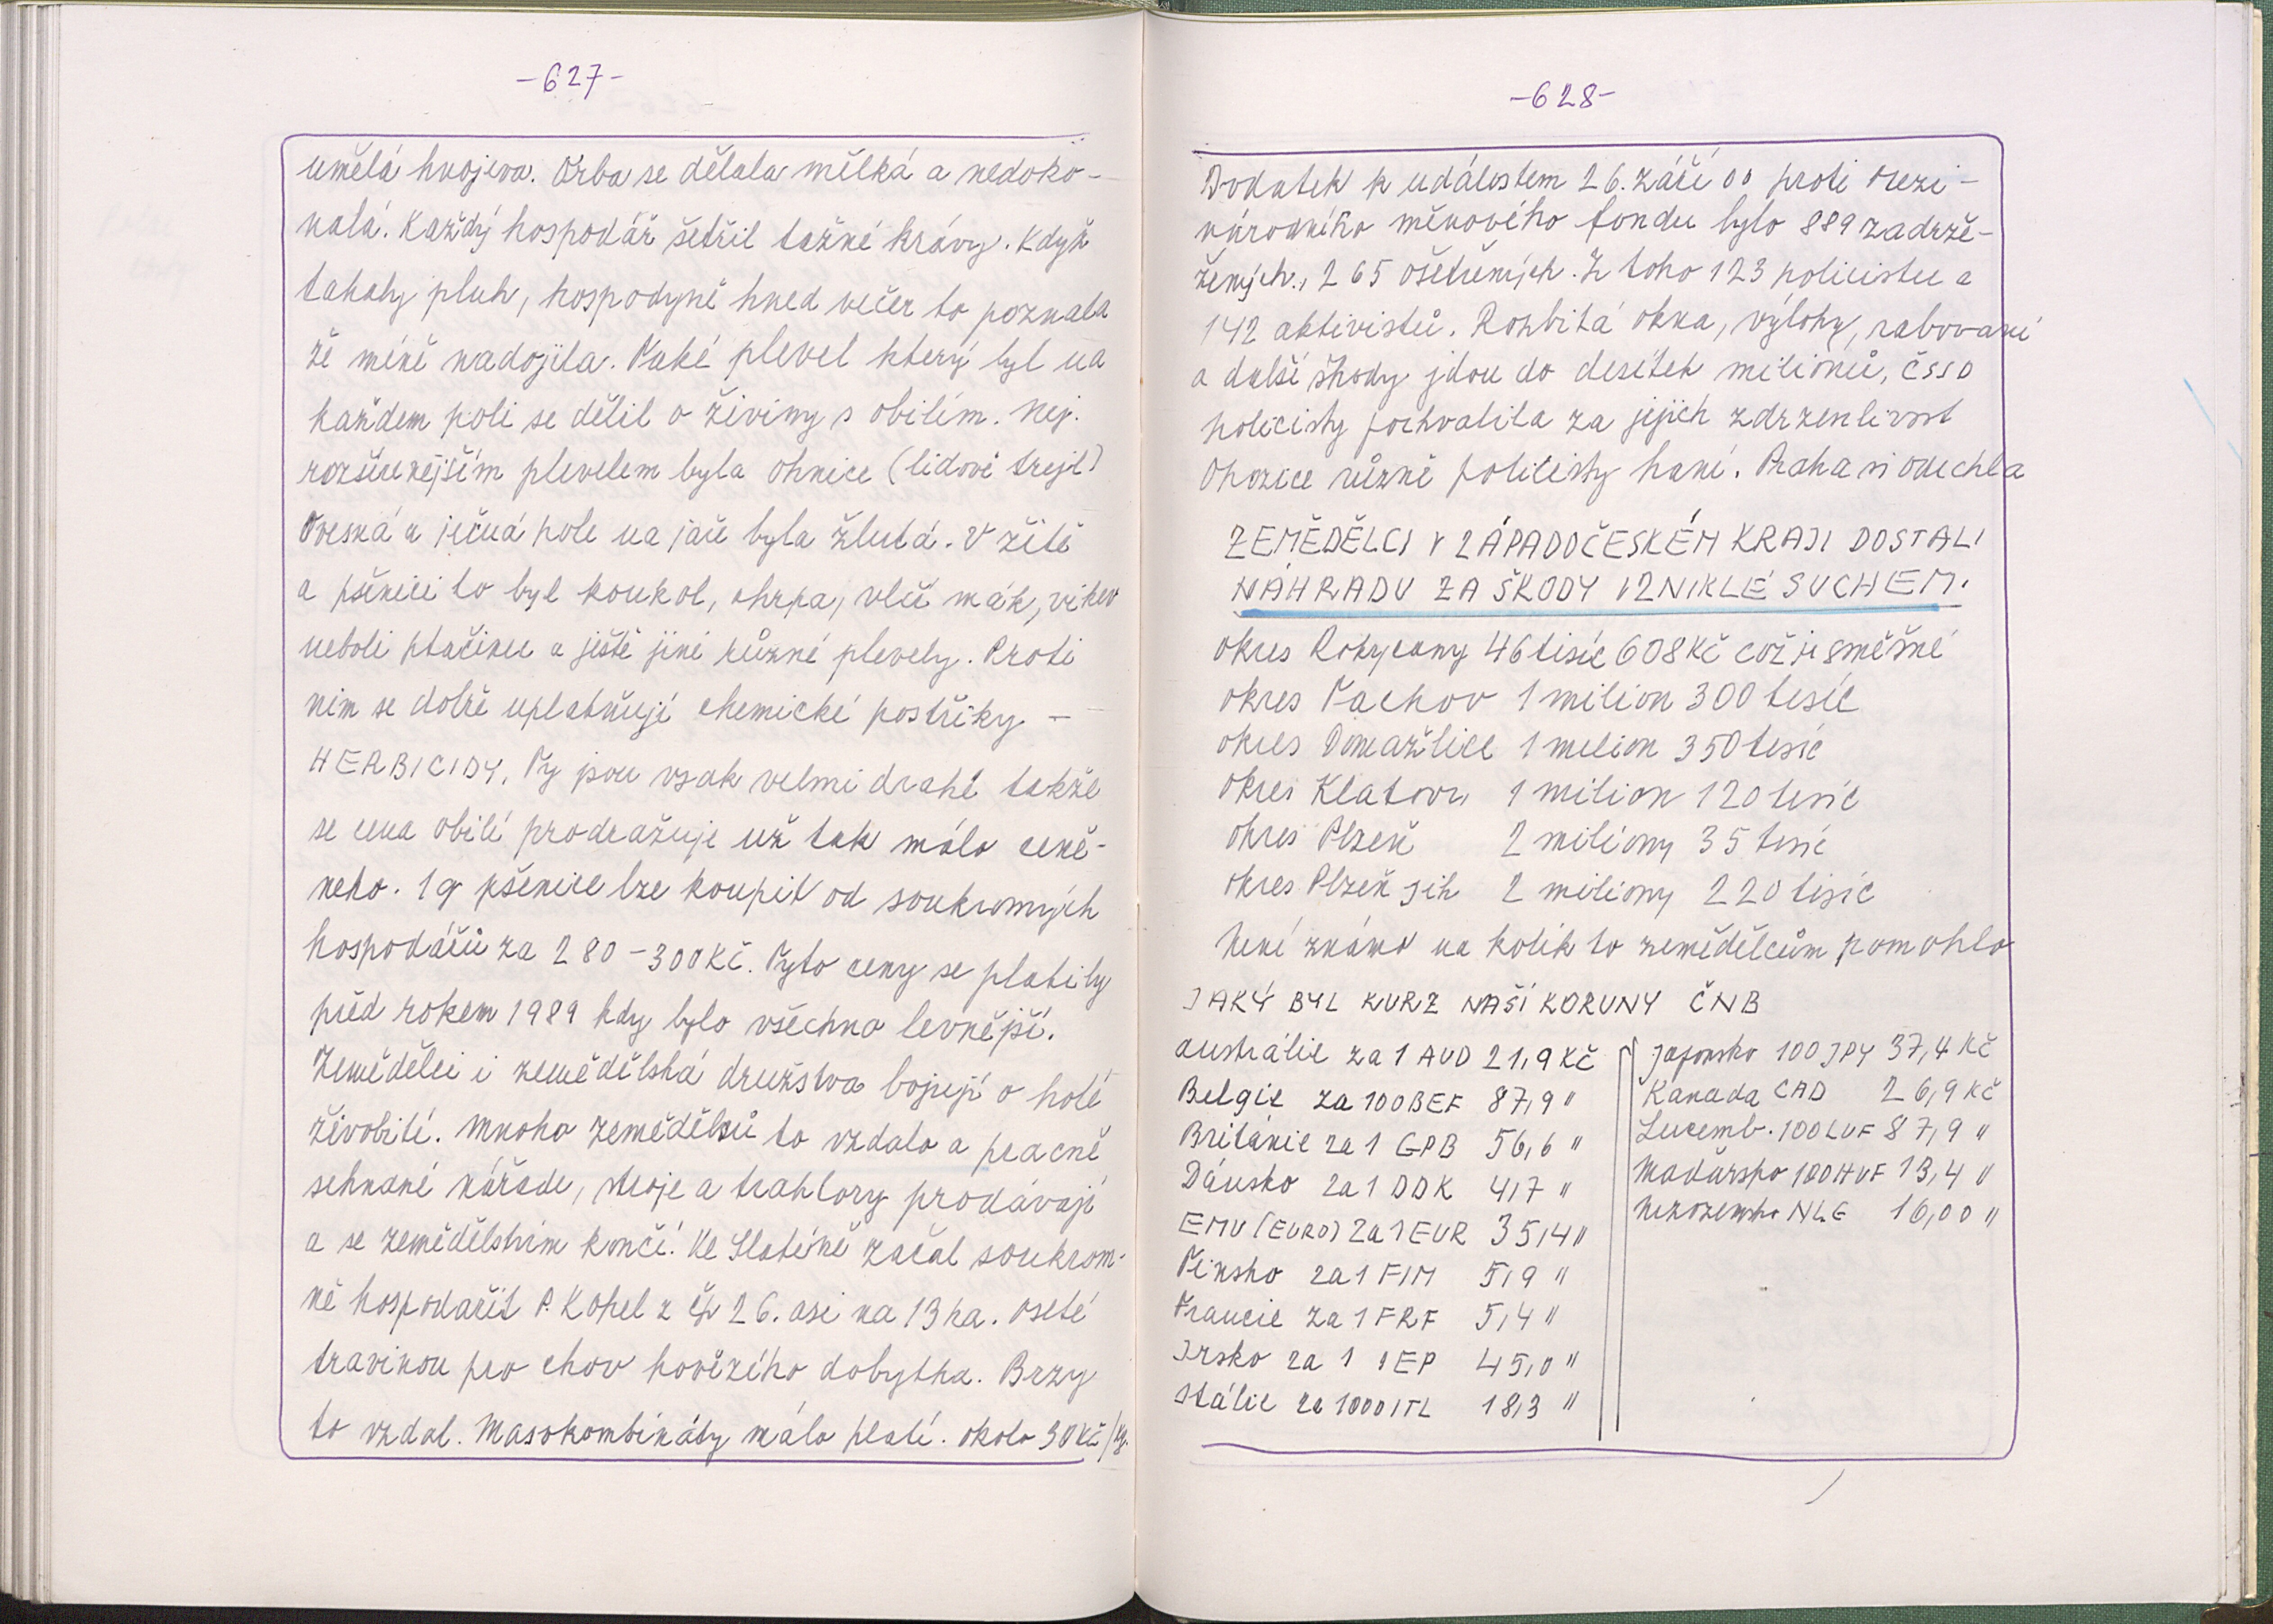 -627-
umělá hnojiva. Orba se dělala mělká a nedoko-
nalá. Každý hospodář šetřil tažné krávy. Když
tahaly pluh, hospodyně hned večer to poznala
že méně nadojila. Také plevel který byl na
každem poli se dělil o živiny s obilím. Nej.
rozšířenějším plevelem byla ohnice (lidově trejl)
Ovesná a ječná pole na jaře byla žlutá. V žitě
a pšenici to byl koukol, chrpa, vlčí mák, vikev
neboli ptačinec a ještě jiné různé plevely. Proti
nim se dobře uplatňují chemické postřiky -
HERBICIDY. Ty jsou vsak velmi drahé takže
se cena obilí prodražuje už tak málo ceně-
neho. 1 q pšenice lze koupit od soukromých
hospodářů za 280-300 Kč. Tyto ceny se platily
před rokem 1989 kdy bylo všechno levnější.
Zemědělci i zemědělská družstva bojují o holé
živobití. Mnoho zemědělců to vzdalo a pracně
sehnané nářade, stroje a traktory prodávají
a se zemědělstvím končí. Ve Slatině začal soukrom-
ně hospodařit P. Kopel z čp 26. asi na 13 ha. oseté
travinou pro chov hovězího dobytka. Brzy
to vzdal. Masokombináty málo platí. okolo 30 Kč/kg.
-628-
Dodatek k událostem 26. září 00 proti Mezi-
národního měnového fondu bylo 889 zadrže-
žených., 265 ošetřených. Z toho 123 policistu a
142 aktivistů. Rozbitá okna, výlohy, rabování
a další škody jdou do desítek milionů, ČSSD
policisty pochvalila za jejich zdrzenlivost
Opozice různě policisty haní. Praha si oddechla
ZEMĚDĚLCI V ZÁPADOČESKÉM KRAJI DOSTALI
NÁHRADU ZA ŠKODY VZNIKLÉ SUCHEM.
okres Rokycany 46 tisíc 608 Kč což je směšné
okres Tachov 1 milion 300 tisíc
okres Domažlice 1 milion 350 tisíc
okres Klatovy 1 milion 120 tisíc
okres Plzeň 2 miliony 35 tisíc
okres Plzeň jih 2 miliony 220 tisíc
Není známo na kolik to zemědělcům pomohlo
JAKÝ BYL KURZ NAŠÍ KORUNY ČNB
Austrálie za 1 AUD 21,9 Kč
Belgie za 100 BEF 87,9 "
Británie za 1 GPB 56,6 "
Dánsko za 1 DDK 4,7 "
EMU (EURO) za 1 EUR 35,4 "
Finsko za 1 FIM 5,9 "
Francie za 1 FRF 5,4 "
Irsko za 1 IEP 45,0 "
Itálie za 1000 ITL 18,3 "
Japonsko 100 JPY 37,4 Kč
Kanada CAD 26,9 Kč
Lucemb. 100 LUF 87,9 "
Maďarsko 100 HUF 13,4 "
Nizozemsko NLG 16,00 "